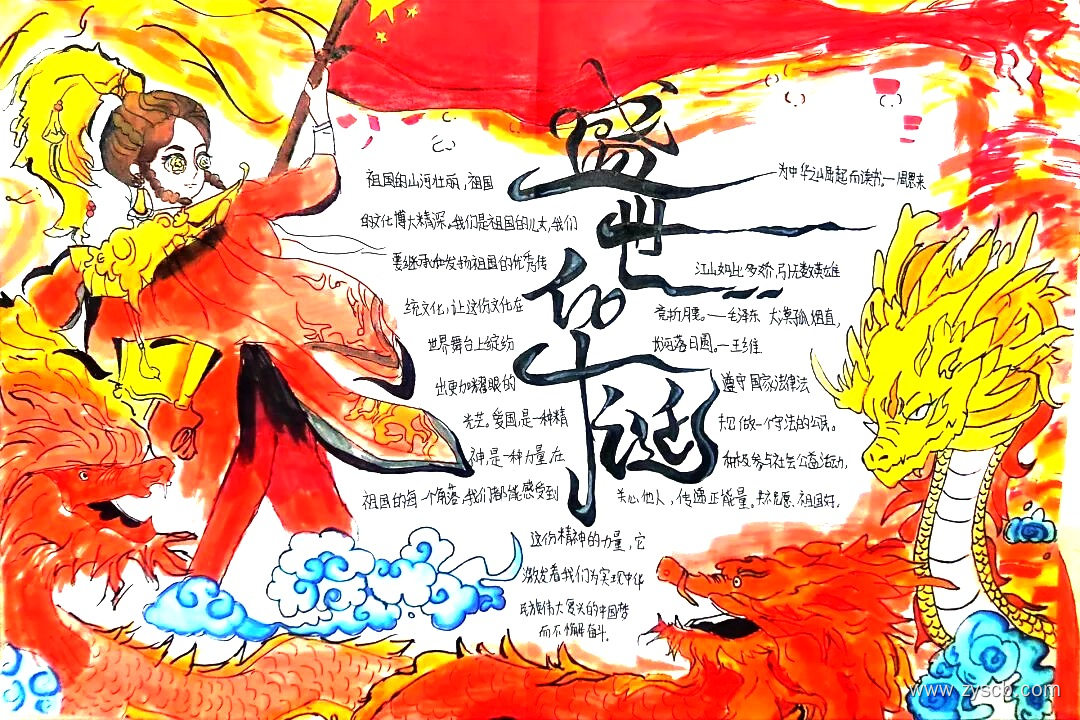 盛世华诞
祖国的山河壮丽,祖国
的文化博大精深。我们是祖国的儿女,我们
要继承和发扬祖国的优秀传
统文化,让这份文化在
世界舞台上绽纷
出更加耀眼的
光芒。爱国,是一种精
神,是一种力量,在
祖国的每一个角落,我们都能感受到
这份精神的力量,它
激发着我们为实现中华
民族伟大复兴的中国梦
而不懈奋斗。
为中华之崛起而读书。—周恩来
江山如此多娇,引无数英雄
竞折腰。——毛泽东 大漠孤烟直,
长河落日圆。—王维
遵守国家法律法
规,做一个守法的公民。
积极参与社会公益活动,
关心他人,传递正能量。共祝愿,祖国好。
www.zyscb.com